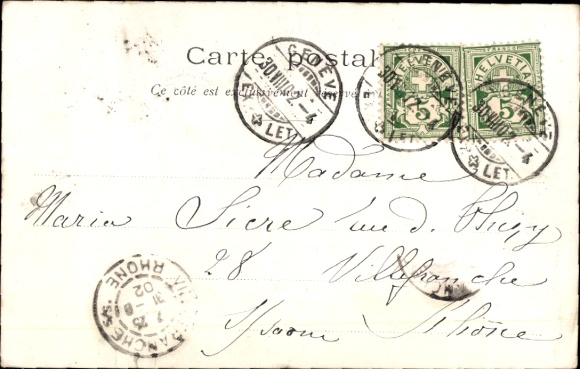 Carte postale
Ce côté est exclusivement réservé
GENÈVE
30.VIII.02.-4
LET
HELVETIA
5
HELVETIA
5
Madame
Maria Sicre rue d. Thizy
28 Villefranche
s/Saone Rhône
RHONE
7 25
31-8
02